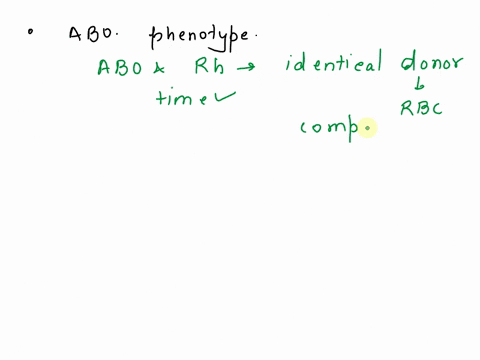 • ABO. phenotype.
ABO & Rh → identical donor
↓
time ✓ RBC
comp